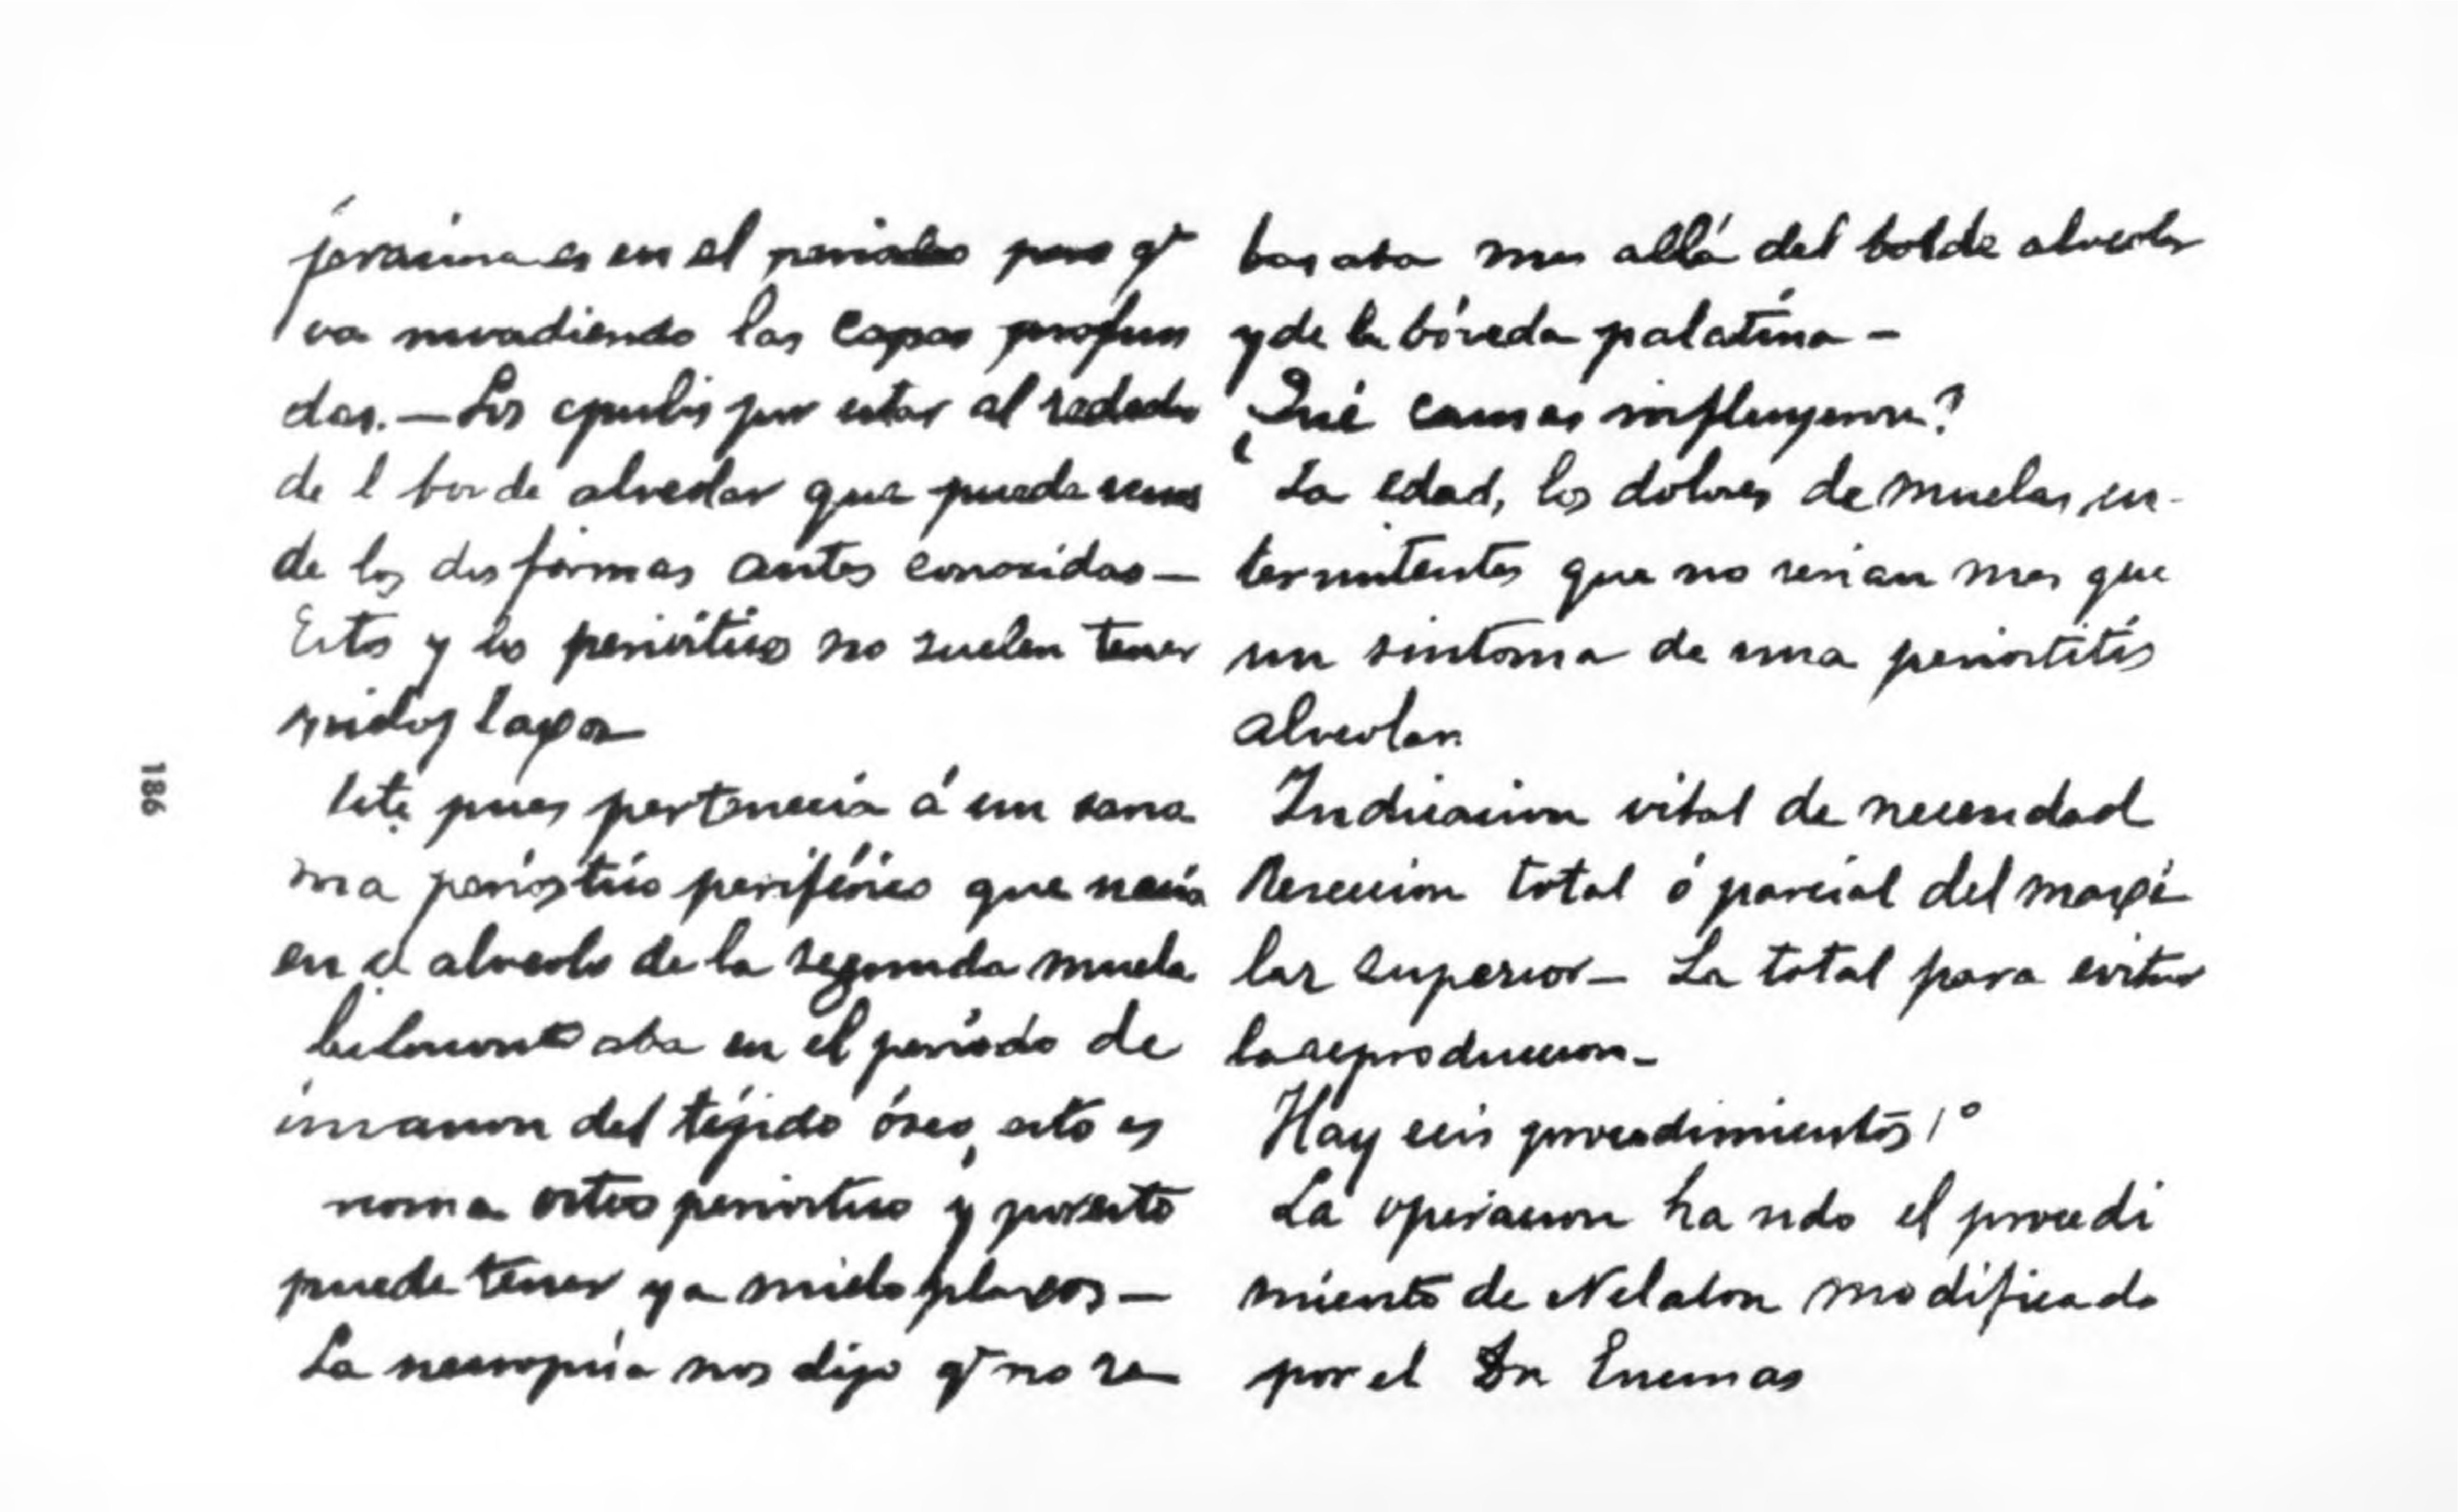 en el periodo pero qe
va invadiendo las capas profun
das. — Los epulis por estar al rededor
de l borde alveolar que puede
de las dos formas antes conocidas —
Esto y los periósticos no suelen tener

Este pues pertenecia á un sarco
ma perióstico periférico que nacia
en el alveolo de la segunda muela
aba en el periódo de
del téjido óseo, esto es
osteo periostico y por esto
puede tener ya mieloplaxos —
La necropsia nos dijo qe no re
basaba mas allá del bolde alveolar
y de la bóveda palatina —
¿Qué causas influyeron?
La edad, los dolores de muelas, in-
termitentes que no serian mas que
un sintoma de una periostitis
alveolar.
Indicacion vital de necesidad
Reseccion total ó parcial del maxi
lar superior — La total para evitar
la reproduccion —
Hay seis procedimientos 1º
La operacion ha sido el procedi
miento de Nelaton modificado
por el Dr Encinas
186